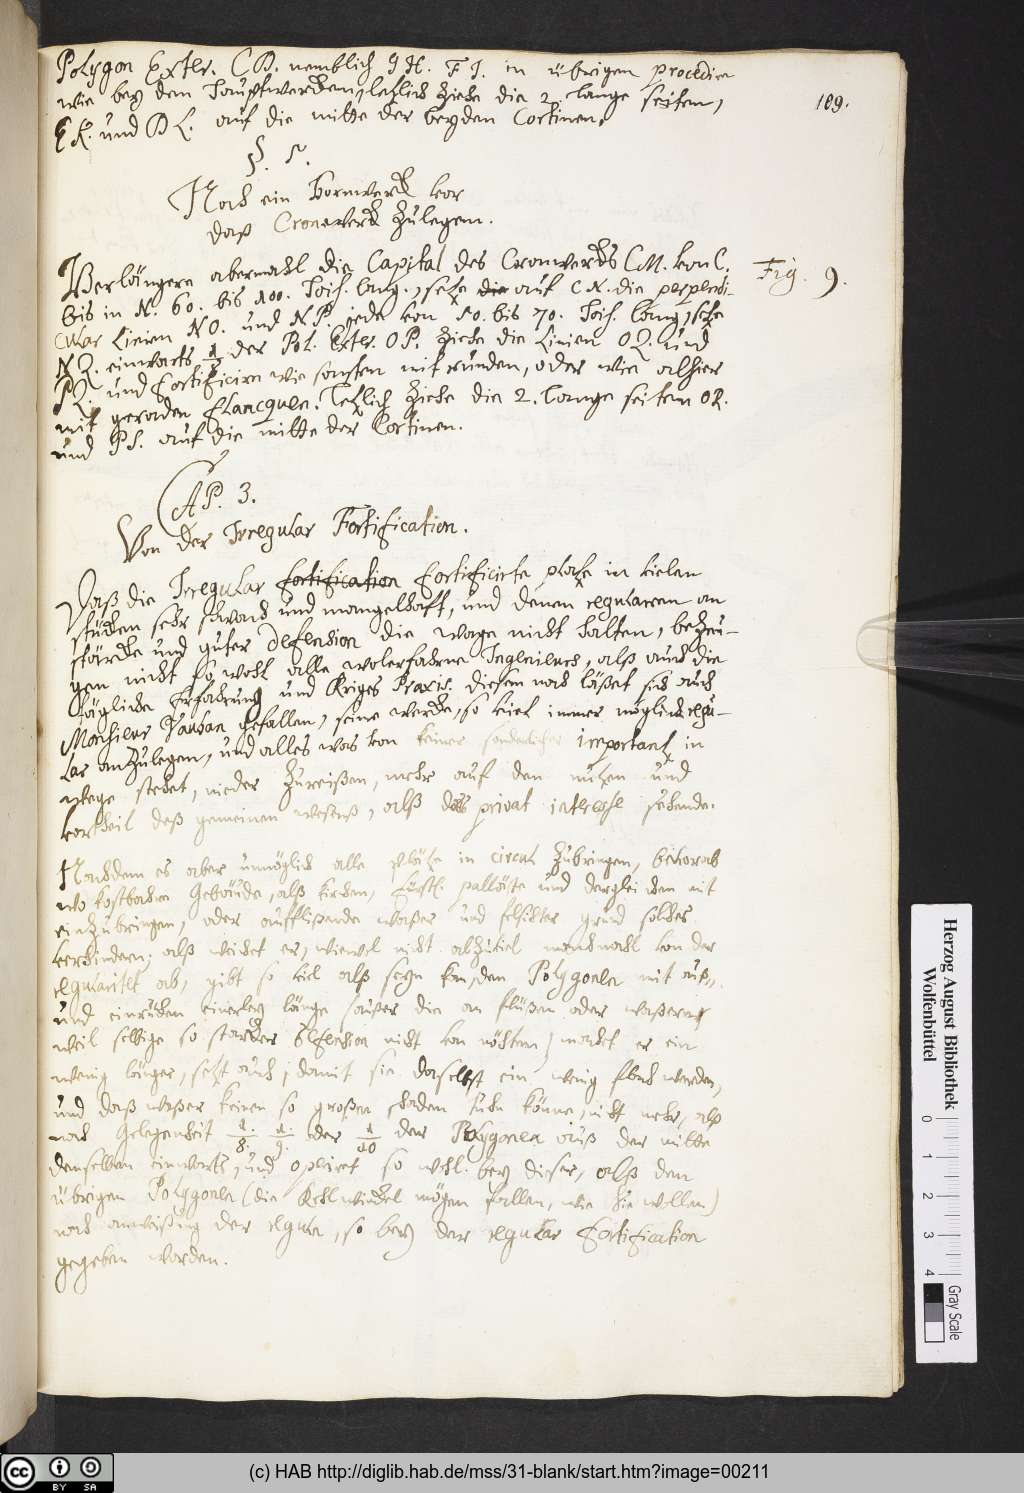 Polygon Exter. C D. nemblich G H. F I. in übrigen procedire
wie bey dem Haubtwercken, letzlich ziehe die 2. lange seiten,
E K. und D L. auf die mitte der beyden Cortinen.
109.
§. 5.
Noch ein Hornwerck vor
daß Cronewerck Zulegen.
Verlängere abermahl die Capital des Cronwercks C M. von C.
Fig. 9.
bis in N. 60. bis 100. Tois. lang, setze die auf C N. die perpendi-
cular Linien N O. und N P. jede von 50. bis 70. Tois. lang, setze
N Q. einwarts 1/5 der Pol. Exter. O P. ziehe die Linien O Q. und
P Q. und fortificire wie sonsten mit runden, oder wie alhier
mit geraden flancquen. Letzlich ziehe die 2. lange seiten O R.
und P S. auf die mitte der Cortinen.
CAP. 3.
Von der Irregular Fortification.
Daß die Irregular fortification fortificirte platze in vielen
stücken sehr schwach und mangelhaft, und denen regularen an
stärcke und guter Defension die wage nicht halten, bezeu-
gen nicht so wohl alle wolerfahrne Ingenieurs, alß auch die
tägliche Erfahrung und Kriges Praxis. diesem nach läßet sich auch
Monsieur Vauban gefallen, seine wercke, so viel immer möglich regu-
lar anzulegen, und alles was von keiner sonderlicher importantz in
wege stehet, nieder zureißen, mehr auf den nutzen und
vortheil deß gemeinen wesens, alß das privat interesse sehende.
Nachdem es aber unmöglich alle plätze in circul zubringen, bevorab
wo kostbahre Gebäude, alß kirchen, fürstl. palläste und dergleichen mit
einzubringen, oder aufflißende waßer und felsichter grund solches
verhindern; alß weichet er, wiewol nicht alzuviel manchmahl von der
regularitet ab, gibt so viel alß seyn kan, den Polygonen mit auß-
und einrücken einerley länge (außer die an flüßen oder waßern
weil selbige so starcker defension nicht von nöhten) machet er ein
wenig länger, setzt auch, damit sie daselbst ein wenig flach werden,
und daß waßer keinen so großen schaden thun könne, nicht mehr, alß
nach Gelegenheit 1/8. 1/9. oder 1/10 der Polygonen auß der mitte
denselben einwarts, und operiret so wohl bey dieser, alß den
übrigen Polygonen (die Kehlwinckel mögen fallen, wie sie wollen)
nach anweißung der regulen, so bey der regular fortification
gegeben worden.
Herzog August Bibliothek
Wolfenbüttel
0 1 2 3 4
Gray Scale
cc BY SA
(c) HAB http://diglib.hab.de/mss/31-blank/start.htm?image=00211